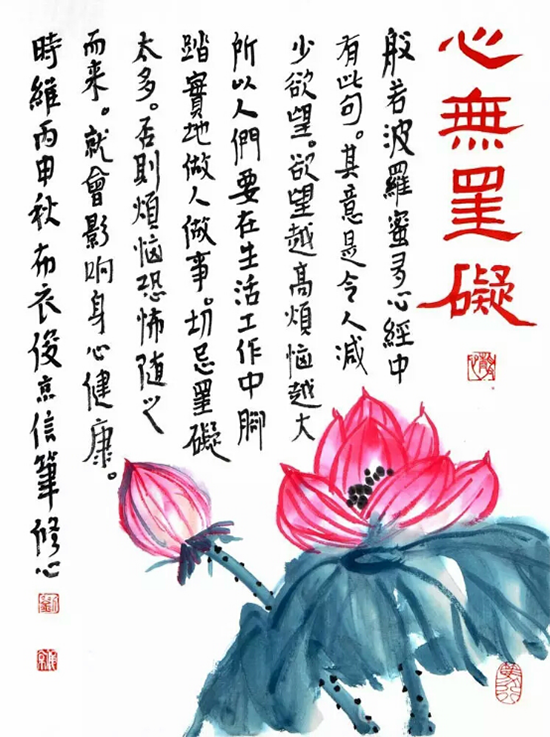 心無罣礙
般若波羅蜜多心經中
有此句。其意是令人減
少欲望。欲望越高煩惱越大
所以人們要在生活工作中腳
踏實地做人做事。切忌罣礙
太多。否則煩惱恐怖随之
而来。就會影响身心健康。
時維丙申秋布衣俊京信筆修心